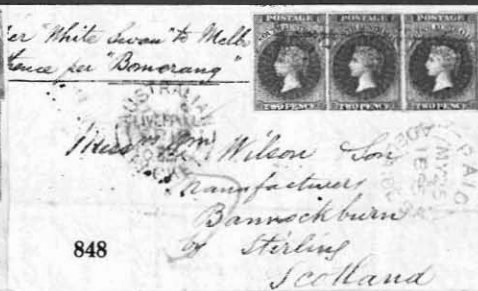 per "White Swan" to Melb
thence per "Bomerang"
POSTAGE POSTAGE POSTAGE
TWO PENCE TWO PENCE TWO PENCE
AUSTRALIAN
LIVERPOOL
PAID
ADELAIDE
Messrs Wm Wilson & Son
Manufacturers
Bannockburn
by Stirling
Scotland
848